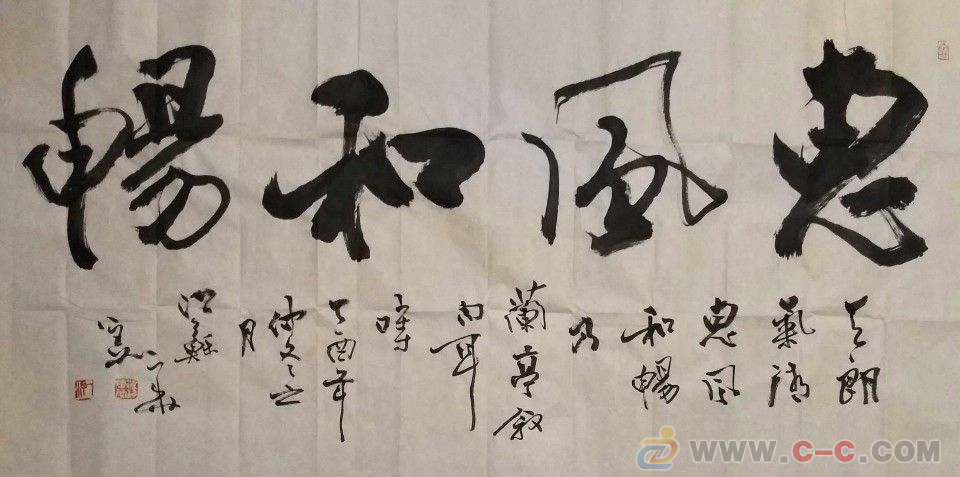 惠風和暢
天朗
氣清
惠風
和暢
乃
蘭亭叙
内耳
時
酉年
仲冬之
月
江蘇
WWW.C-C.COM